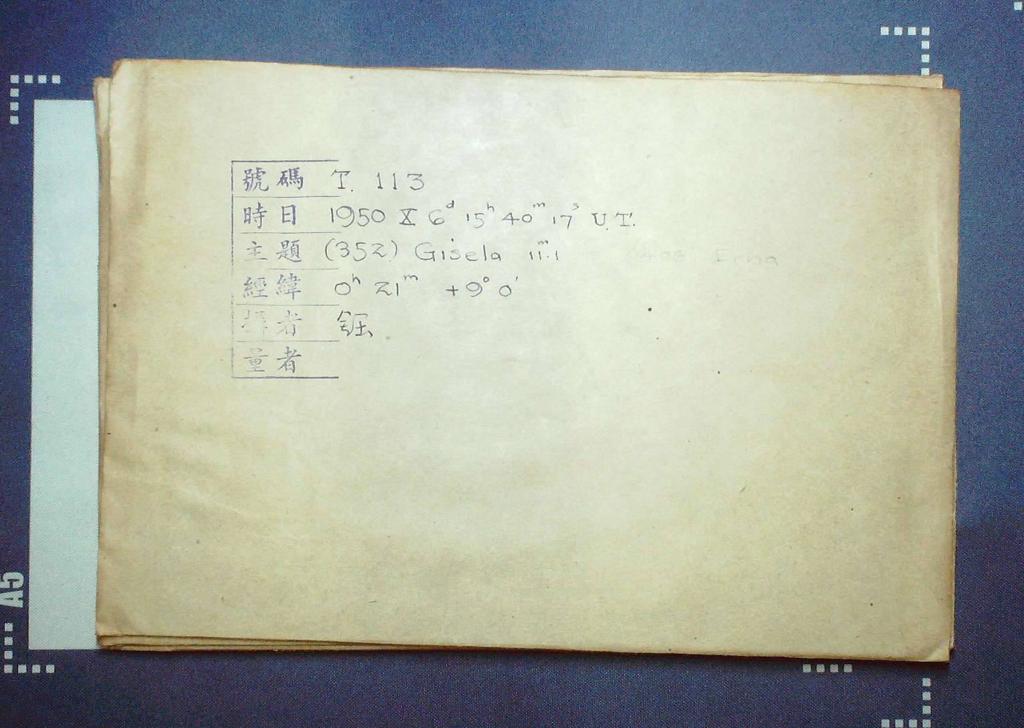 號碼 T. 113
時日 1950 X 6ᵈ 15ʰ 40ᵐ 17ˢ U.T.
主題 (352) Gisela 11ᵐ.1
經緯 0ʰ 21ᵐ +9° 0'
者
量者
A5